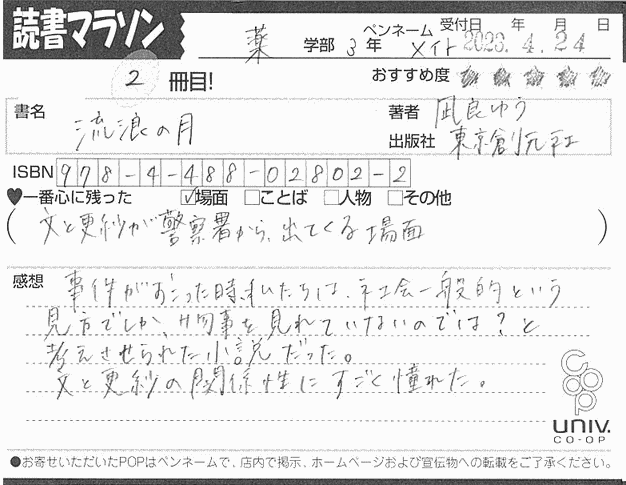 読書マラソン
薬 学部 3 年 ペンネーム メイト 受付日 年 月 日 2023. 4. 24
2 冊目!
おすすめ度
書名 流浪の月
著者 凪良ゆう
出版社 東京創元社
ISBN 978-4-488-02802-2
♥一番心に残った ☑場面 □ことば □人物 □その他
(文と更紗が警察署から、出てくる場面)
感想 事件がおこった時、私たちは、社会一般的という
見方でしか、物事を見れていないのでは?と
考えさせられた小説だった。
文と更紗の関係性にすごく憧れた。
coop
UNIV.
CO-OP
●お寄せいただいたPOPはペンネームで、店内で掲示、ホームページおよび宣伝物への転載をご了承ください。